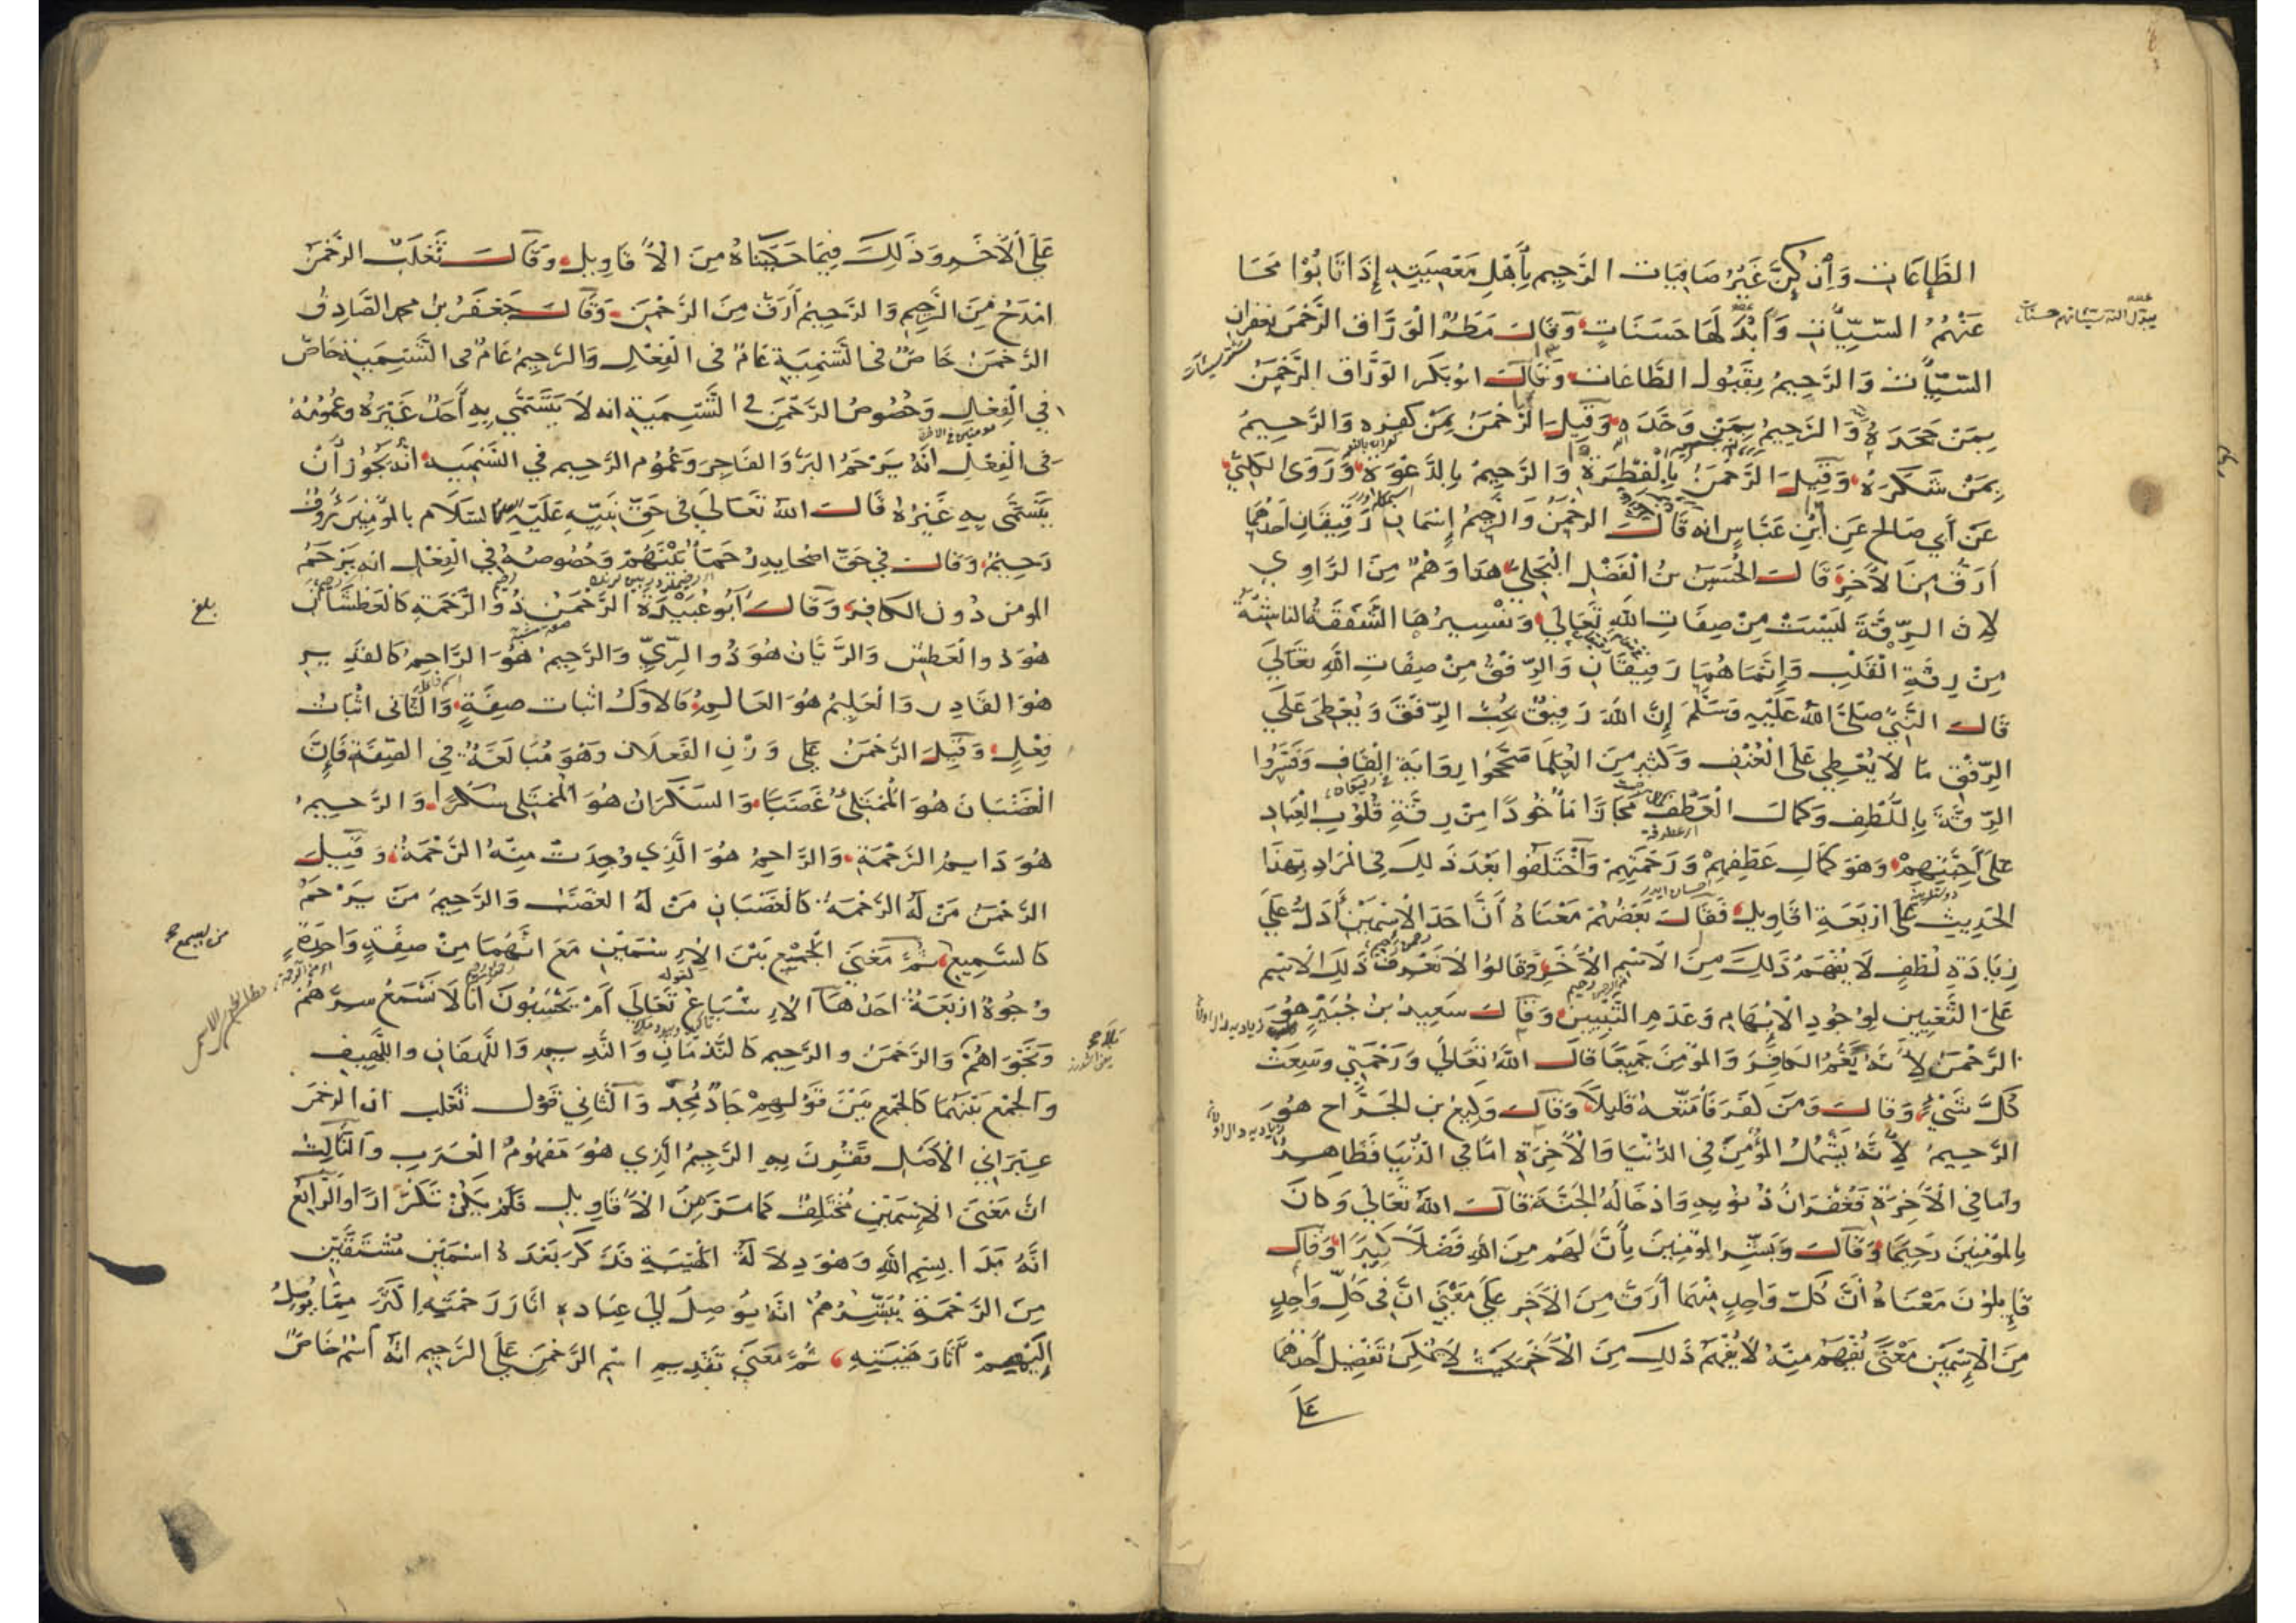 الطَّاعَاتِ وَإِن كُنَّ غَيْرُ صَافِيَات الرَّحِيم بِأَهْلِ مَعْصِيَتِهِ إِذَا تَابُوْا مَحَا
عَنْهُمُ السَّيِّآتِ وَأَبْدَلَهَا حَسَنَاتٍ وَقَالَ مَطَرُ الْوَرَّاق الرَّحْمَنُ بغفران
السَّيِّآت وَالرَّحِيمُ بِقَبُولِ الطَّاعَات وَقَالَ ابُو بَكَر الوَرَّاق الرَّحْمَنُ
بِمَنْ جَحَدَهُ وَالرَّحِيمُ بِمَنْ وَحَّدَه وَقِيلَ الرَّحْمَنُ بِمَنْ كفره وَالرَّحِيمُ
بِمَنْ شَكَرَهُ وَقِيلَ الرَّحْمَنُ بِالْفِطْرَةِ وَالرَّحِيمُ بِالدَّعْوَةِ وَرَوَى الكلبيُّ
عَنْ أَبِي صَالح عَنِ ابْنِ عَبَّاسٍ انه قَالَ الرَّحْمَنُ وَالرَّحِيمُ إِسْمَانِ رَقِيقَانِ احَدُهُمَا
أَرَقُّ مِنَ الآخَرِ قَالَ الْحُسَيْن بنُ الْفَضْلِ الْبَجَلِيُّ هَذَا وَهْمٌ مِنَ الرَّاوِي
لِأَنَّ الرِّقَّةَ لَيْسَتْ مِنْ صِفَاتِ اللهِ تَعَالَى وَتَفْسِيرُهَا الشَّفَقَةُ النَّاشِئَةُ
مِنْ رِقَّةِ الْقَلْبِ وَإِنَّمَا هُمَا رَفِيقَانِ وَالرِّفْقُ مِنْ صِفَاتِ اللهِ تعَالَى
قَالَ النَّبِيُّ صَلَّى اللهُ عَلَيْهِ وَسَلَّمَ إِنَّ اللهَ رَفِيقٌ يُحِبُّ الرِّفْقَ وَيُعْطِي عَلَى
الرِّفْقِ مَا لَا يُعْطِي عَلَى الْعُنْفِ وَكَثِيرٌ مِنَ الْعُلَمَا صَحَّحُوا رِوَايَةَ الْقَافِ وَفَسَّرُوا
الرِّقَّةَ بِاللُّطْفِ وَكَمَالِ الْعَطْفِ مَجَازًا مَأْخُوذًا مِنْ رِقَّةِ قُلُوْبِ الْعِبَادِ
عَلَى أَحِبَّتِهِمْ وَهُوَ كَمَالُ عَطْفِهِمْ وَرَحْمَتِهِمْ وَاخْتَلَفُوا بَعْدَ ذَلِكَ فِي الْمُرَادِ بِهَذَا
الحَدِيثِ عَلَى أَرْبَعَةِ اقَاوِيلَ فَقَالَ بَعْضُهُمْ مَعْنَاهُ أَنَّ احَدَ الْإِسْمَيْنِ أَدَلُّ عَلَى
زِيَادَةِ لُطْفٍ لَا يُفْهَمُ ذَلِكَ مِنَ الْإِسْمِ الْآخَرِ وَقَالُوا لَا نَعْرِفُ ذَلِكَ الْإِسْمَ
عَلَى التَّعْيِينِ لِوُجُودِ الْإِبْهَامِ وَعَدَمِ التَّبْيِينِ وَقَالَ سَعِيدُ بْنُ جُبَيْرٍ هُوَ
الرَّحْمَنُ لِأَنَّهُ يَعُمُّ الكَافِرَ وَالمُؤْمِنَ جَمِيعًا قَالَ اللهُ تَعَالَى وَرَحْمَتِي وَسِعَتْ
كُلَّ شَيْءٍ وَقَالَ وَمَنْ كَفَرَ فَأُمَتِّعُهُ قَلِيلًا وَقَالَ وَكِيعُ بن الجَرَّاح هُوَ
الرَّحِيمُ لِأَنَّهُ يَشْمُلُ المُؤْمِنَ فِي الدُّنْيَا وَالْآخِرَةِ امَّا فِي الدُّنْيَا فَظَاهِرٌ
وَامَا فِي الْآخِرَةِ فَغُفْرَانُ ذُنُوبِهِ وَادْخَالُهُ الجَنَّةَ قَالَ اللهُ تَعَالَى وَكَانَ
بِالْمُؤْمِنِينَ رَحِيمًا وَقَالَ وَبَشِّرِ الْمُؤْمِنِينَ بِأَنَّ لَهُمْ مِنَ اللهِ فَضْلًا كَبِيرًا وَقَالَ
قَائِلُونَ مَعْنَاهُ أَنَّ كُلَّ وَاحِدٍ مِنْهُمَا أَرَقُّ مِنَ الآخَرِ عَلَى مَعْنَى انَّ فِي كُلِّ وَاحِدٍ
مِنَ الْإِسْمَيْنِ مَعْنًى يُفْهَمُ مِنْهُ لَا يُفْهَمُ ذَلِكَ مِنَ الْآخَرِ بِحَيْثُ لَا يُمْكِنُ تَفْضِيلُ أَحَدِهِمَا
عَلَى
يبدل الله سيئاتهم حسنات
عَلَى الْآخَرِ وَذَلِكَ فِيمَا حَكَيْنَاهُ مِنَ الْأَقَاوِيلِ وَقَالَ ثَعْلَبُ الرَّحْمَن
امْدَحُ مِنَ الرَّحِيمِ وَالرَّحِيمُ أَرَقُّ مِنَ الرَّحْمَنِ وَقَالَ جَعْفَرُ بنُ محمد الصَّادِقُ
الرَّحْمَنُ خَاصٌّ فِي التَّسْمِيَةِ عَامٌ فِي الْفِعْلِ وَالرَّحِيمُ عَامٌ فِي التَّسْمِيَةِ خَاصٌّ
فِي الْفِعْلِ وَخُصُوصُ الرَّحْمَنِ فِي التَّسْمِيَةِ انه لَا يَتَسَمَّى بِهِ أَحَدٌ غَيْرُهُ وَعُمُومُهُ
فِي الْفِعْلِ أَنَّهُ يَرْحَمُ الْبَرَّ وَالْفَاجِرَ وَعُمُومُ الرَّحِيمِ فِي التَّسْمِيَةِ أَنَّهُ يَجُوْزُ أَنْ
يَتَسَمَّى بِهِ غَيْرُهُ قَالَ اللهُ تَعَالَى فِي حَقِّ نَبِيِّهِ عَلَيْهِ السَّلَام بِالْمُؤْمِنِينَ رَؤُفٌ
رَحِيمٌ وَقَالَ فِي حَقِّ اصْحَابِهِ رُحَمَاءُ بَيْنَهُمْ وَخُصُوصُهُ فِي الْفِعْلِ انه يَرْحَمُ
المومن دُونَ الكَافِرِ وَقَالَ أَبُو عُبَيْدَةَ الرَّحْمَنُ ذُو الرَّحْمَةِ كَالْعَطْشَانِ
هُوَ ذُو الْعَطَشِ وَالرَّيَّان هُوَ ذُو الرِّيِّ وَالرَّحِيمُ هُوَ الرَّاحِمُ كَالقَدِيرِ
هُوَ القَادِر وَالْعَلِيمُ هُوَ العَالِمُ فَالْأَوَّلُ اثبات صِفَةٍ وَالثَّانِي اثْبَاتُ
فِعْلٍ وَقِيلَ الرَّحْمَنُ عَلَى وَزْنِ الفَعْلَان وَهُوَ مُبَالَغَةٌ فِي الصِّفَةِ فَإِنَّ
الْغَضْبَانَ هُوَ الْمُمْتَلِئُ غَضَبًا وَالسَّكْرَانُ هُوَ الْمُمْتَلِي سُكْرًا وَالرَّحِيمُ
هُوَ دَايِمُ الرَّحْمَةِ وَالرَّاحِمُ هُوَ الَّذِي وُجِدَتْ مِنْهُ الرَّحْمَةُ وَقِيلَ
الرَّحْمَنُ مَنْ لَهُ الرَّحْمَةُ كَالْغَضْبَانِ مَنْ لَهُ الغَضَبُ وَالرَّحِيمُ مَنْ يَرْحَمُ
كَالسَّمِيعِ ثُمَّ مَعْنَى الْجَمْعِ بَيْنَ الْإِسْمَيْنِ مَعَ انَّهُمَا مِنْ صِفَةٍ وَاحِدَةٍ
وُجُوهٌ ارْبَعَةٌ احَدُهَا الْإِشْبَاعُ تَعَالَى أَمْ يَحْسَبُونَ أَنَّا لَا نَسْمَعُ سِرَّهُمْ
وَنَجْوَاهُمْ وَالرَّحْمَنُ وَالرَّحِيم كَالنَّدْمَانِ وَالنَّدِيمِ وَاللَّهْفَانِ وَاللَّهِيفِ
وَالْجَمْعُ بَيْنَهُمَا كَالْجَمْعِ بَيْنَ قَوْلِهِمْ جَادٌّ مُجِدٌّ وَالثَّانِي قَوْلُ ثَعْلَب ان الرَّحْمَنَ
عِبْرَانِيُّ الْأَصْلِ فَقُرِنَ بِهِ الرَّحِيمُ الَّذِي هُوَ مَفْهُومُ الْعَرَبِ وَالثَّالِثُ
انَّ مَعْنَى الْإِسْمَيْنِ مُخْتَلِفٌ كَمَا مَرَّ مِنَ الْأَقَاوِيلِ فَلَمْ يَكُنْ تَكْرَارًا وَالرَّابِعُ
انَّهُ بَدَأ بِبِسْمِ اللهِ وَهُوَ دِلَالَةُ الهَيْبَةِ فَذَكَرَ بَعْدَهُ اسْمَيْنِ مُشْتَقَّيْنِ
مِنَ الرَّحْمَةِ يُبَشِّرُهُمْ انَّهُ يُوصِلُ إِلَى عِبَادِهِ اثَارَ رَحْمَتِهِ اكْثَرَ مِمَّا يُوصِلُ
إِلَيْهِمْ آثَارَ هَيْبَتِهِ ثُمَّ مَعْنَى تَقْدِيمِ اسْمِ الرَّحْمَنِ عَلَى الرَّحِيمِ انَّهُ اسْمٌ خَاصٌّ
لقوله
بلغ